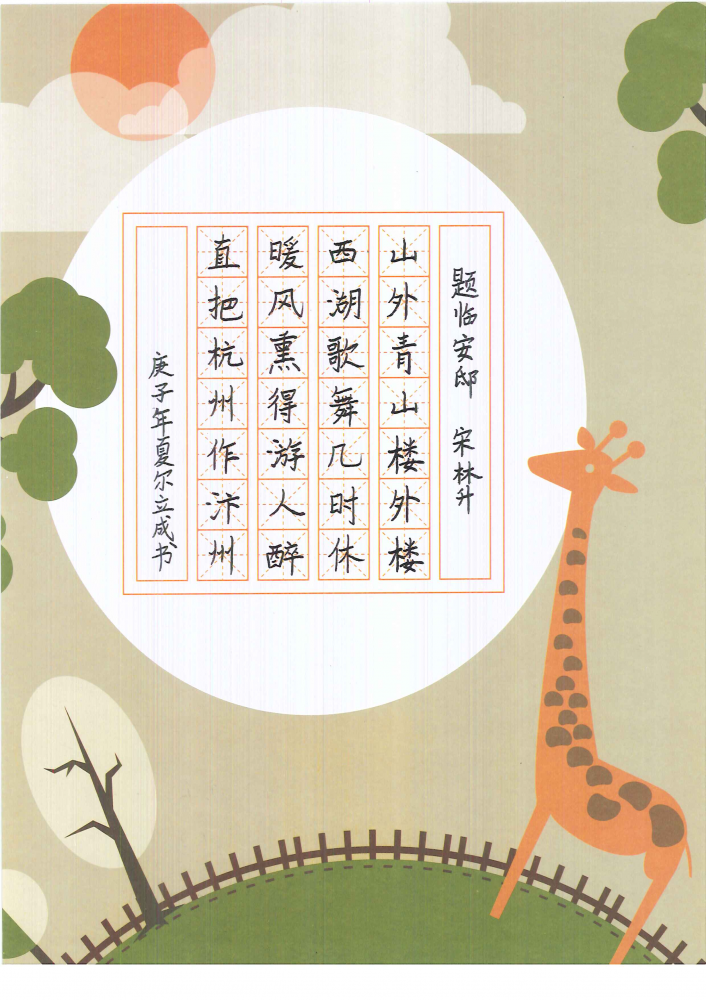 题临安邸 宋林升
山外青山楼外楼
西湖歌舞几时休
暖风熏得游人醉
直把杭州作汴州
庚子年夏尔立成书